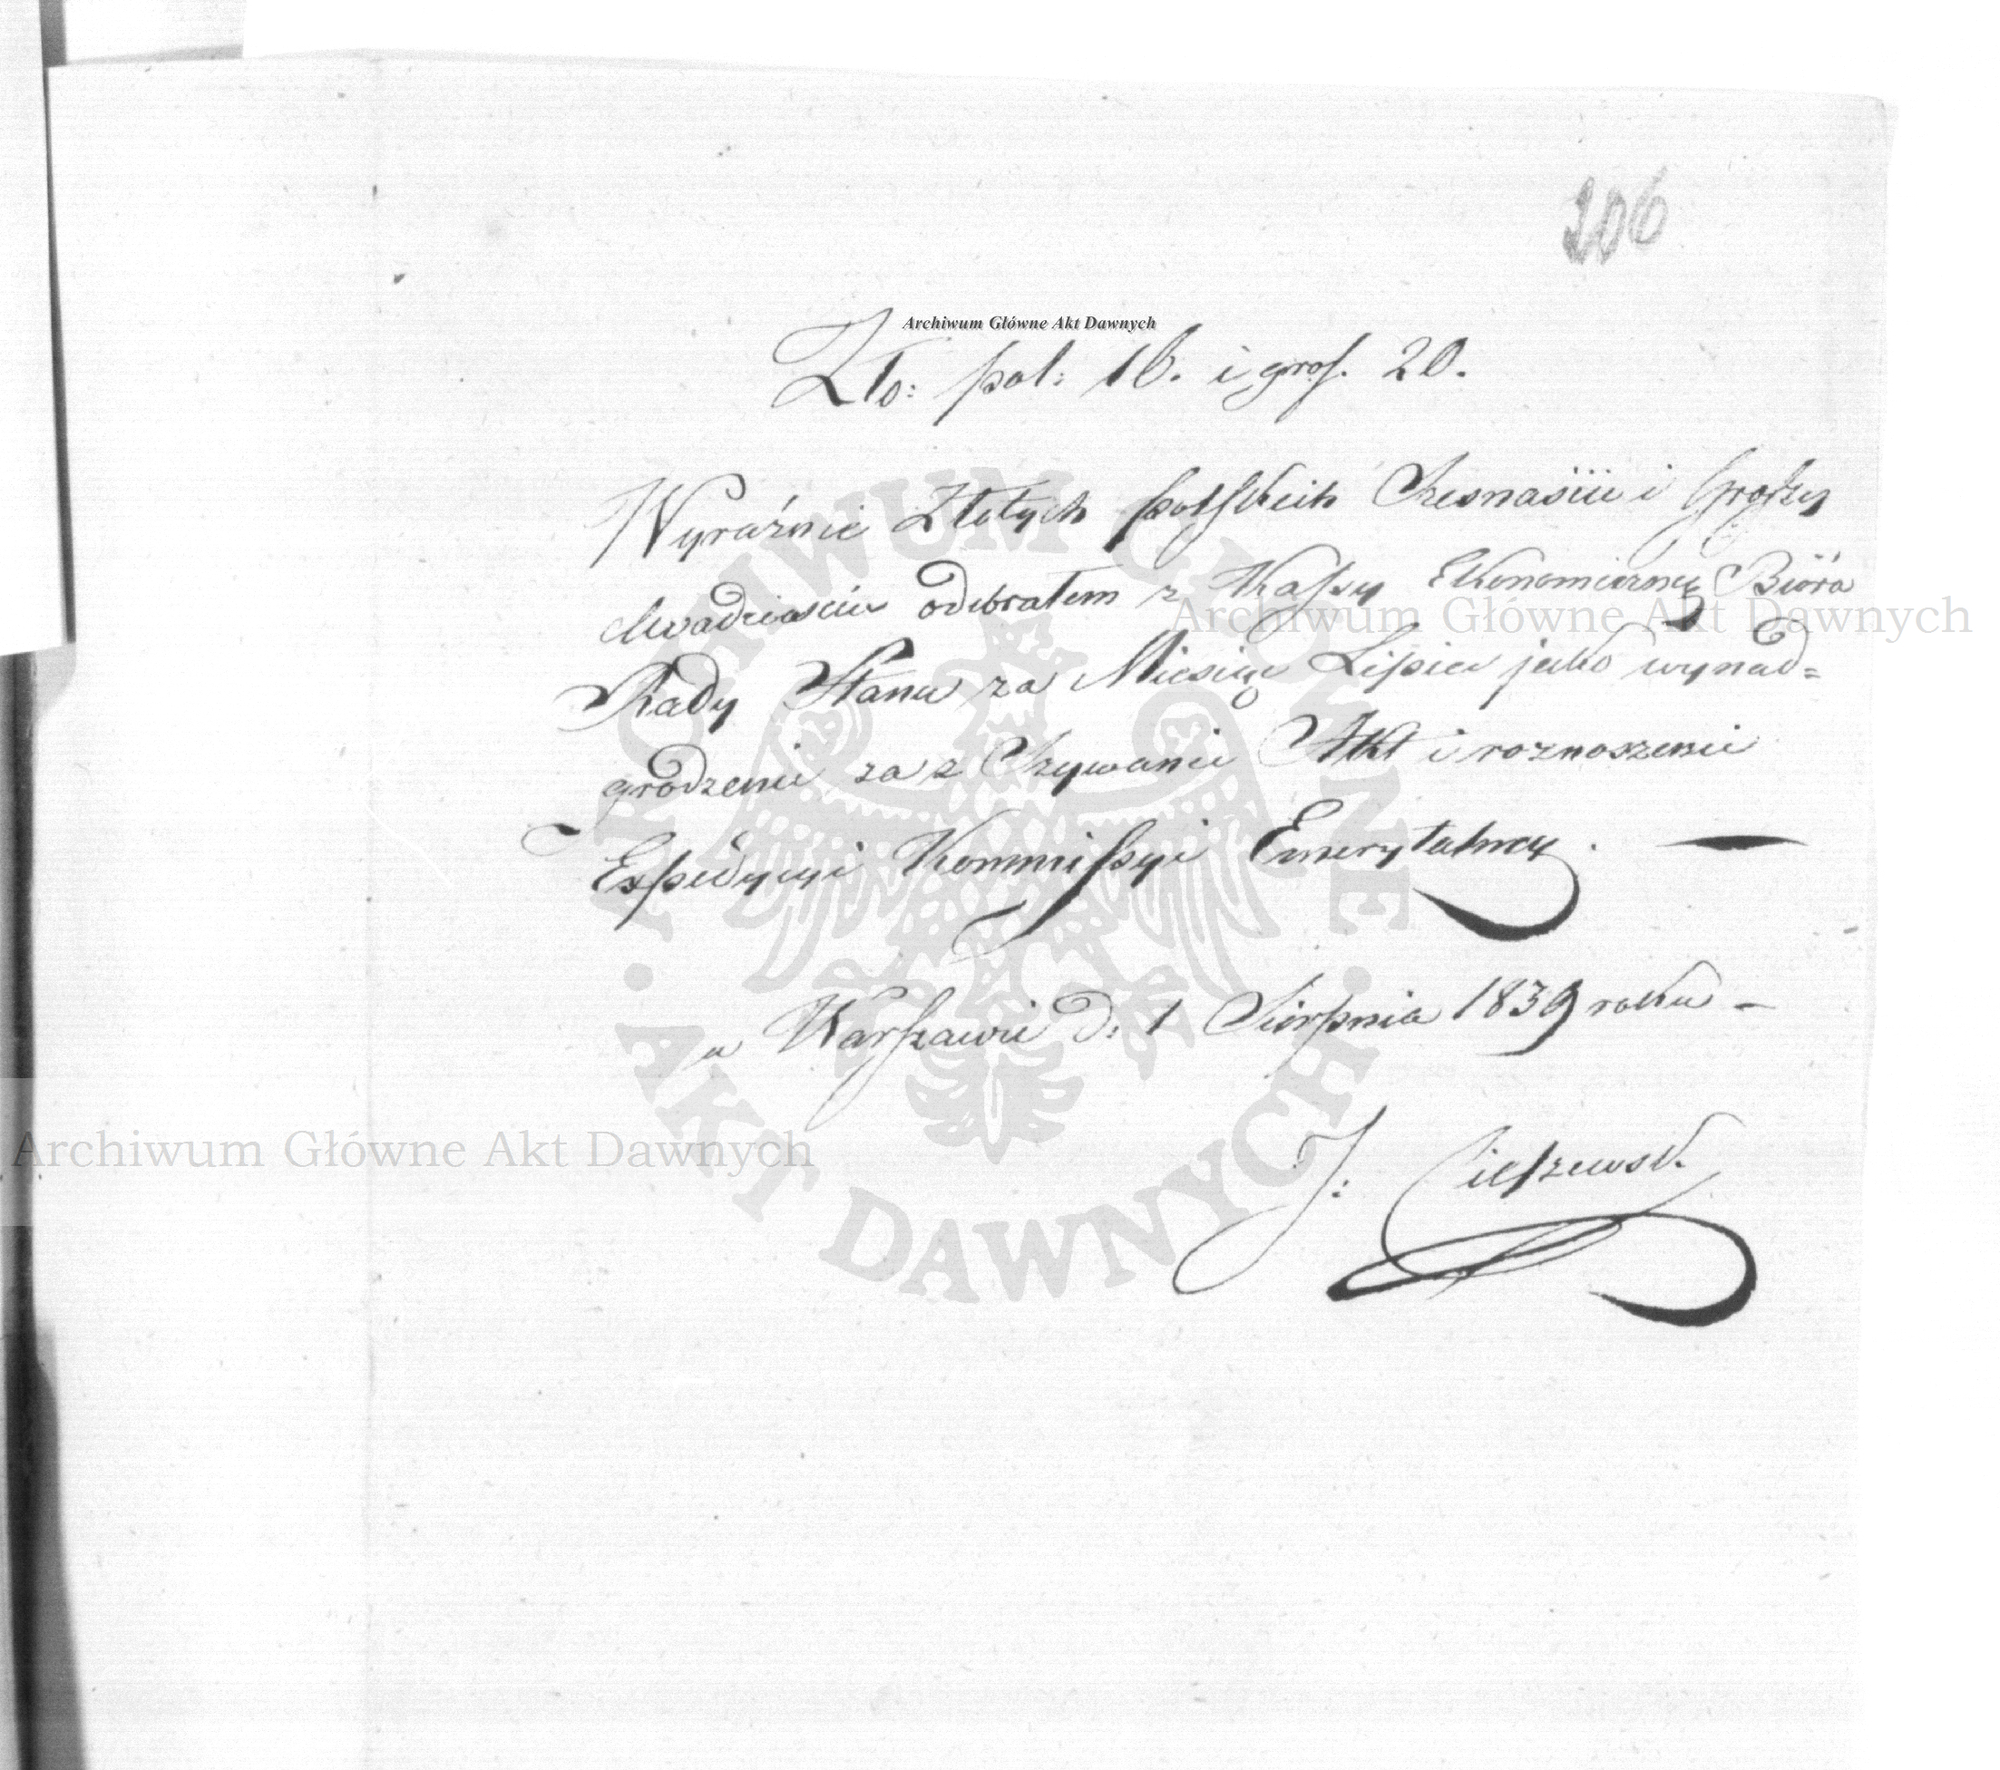 206
Archiwum Główne Akt Dawnych
Zło: pol: 16. i grosz. 20.
Wyraźnie Złotych polskich Szesnaście i Groszy
dwadzieścia odebrałem z Kassy Ekonomiczney Bióra
Archiwum Główne Akt Dawnych
Rady Stanu za Miesiąc Lipiec jako wynad=
grodzenie za z Szywanie Akt i roznoszenie
Expedycyi Kommissyi Emerytalney. —
w Warszawie d: 1 Sierpnia 1839 roku –
Archiwum Główne Akt Dawnych
J: Cieszewsk.
ARCHIWUM GŁÓWNE · AKT DAWNYCH ·